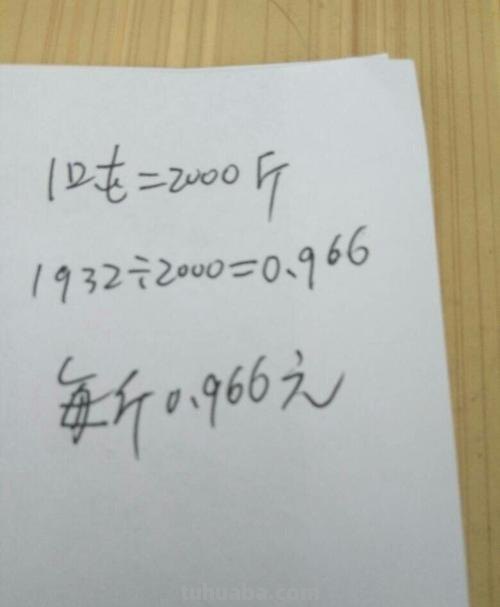 1吨=2000斤
1932÷2000=0.966
每斤0.966元
tuhuaba.com